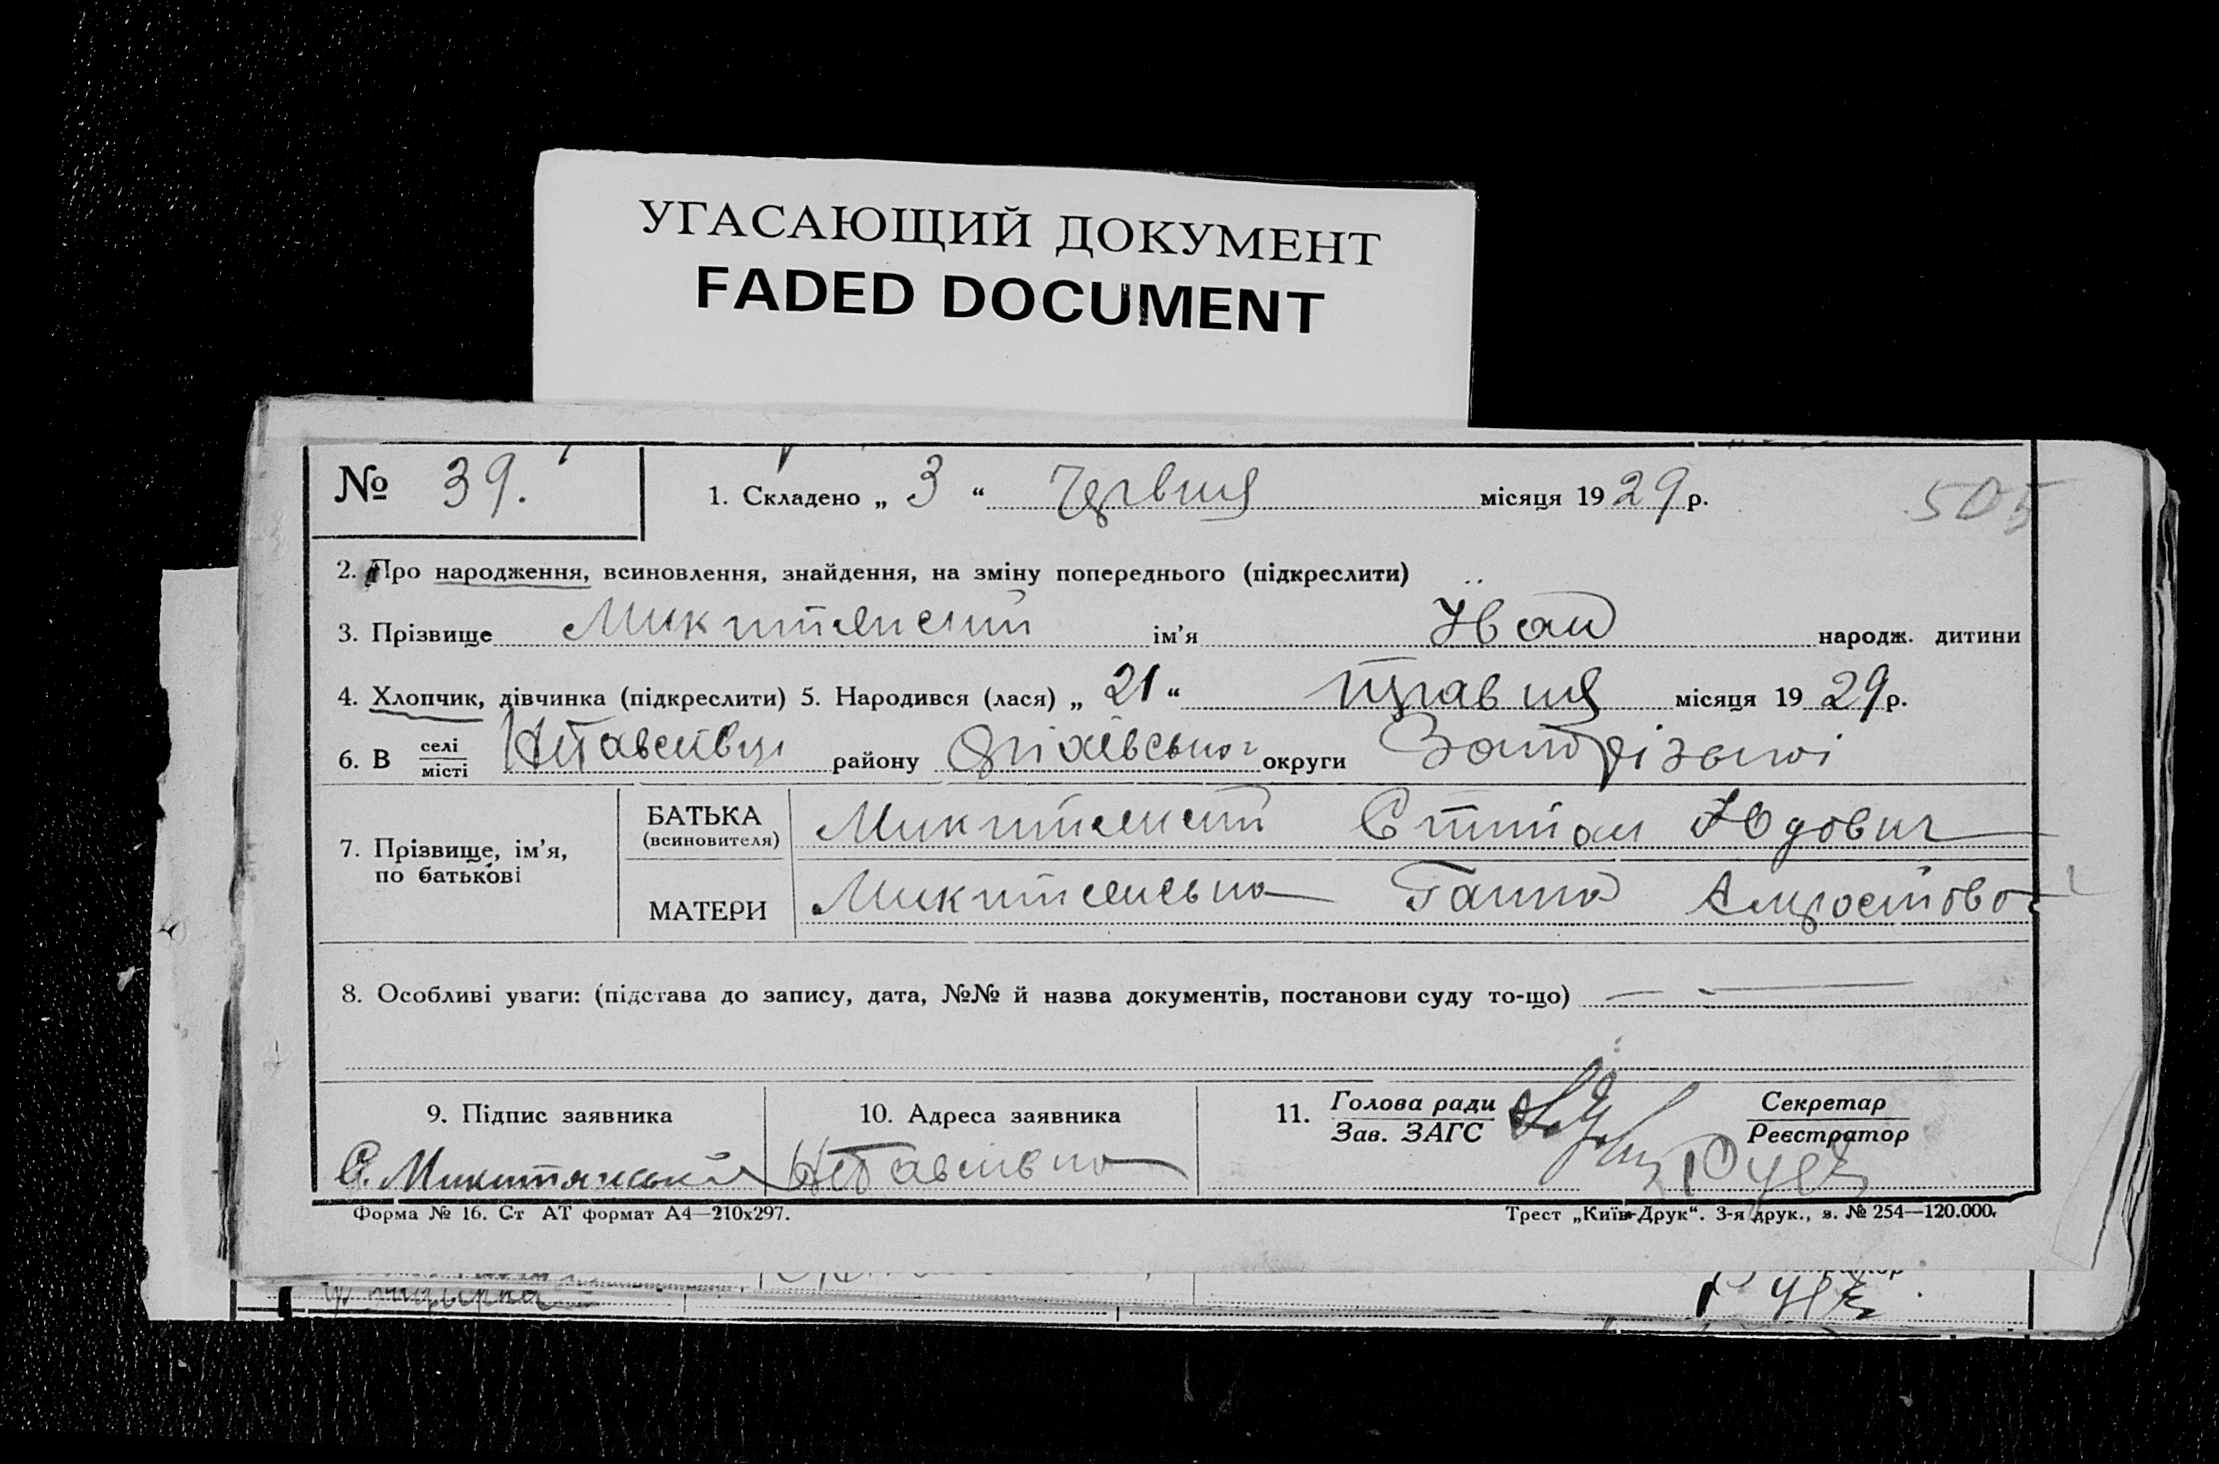 УГАСАЮЩИЙ ДОКУМЕНТ
FADED DOCUMENT
№ 39. 1. Складено „ 3 “ червня місяця 1929 р. 505
2. Про народження, всиновлення, знайдення, на зміну попереднього (підкреслити)
3. Прізвище Микитянский ім’я Їван народж. дитини
4. Хлопчик, дівчинка (підкреслити) 5. Народився (лася) „ 21 “ травня місяця 1929 р.
6. В селі місті району округи
7. Прізвище, ім’я, по батькові
БАТЬКА (всиновителя) Микитянский Степан Юдович
МАТЕРИ Микитянська Ганна
8. Особливі уваги: (підстава до запису, дата, №№ й назва документів, постанови суду то-що)
9. Підпис заявника 10. Адреса заявника 11. Голова ради Зав. ЗАГС Секретар Реєстратор
С. Микитянський
Форма № 16. Ст АТ формат А4—210х297. Трест „Київ-Друк“. 3-я друк., з. № 254—120.000.